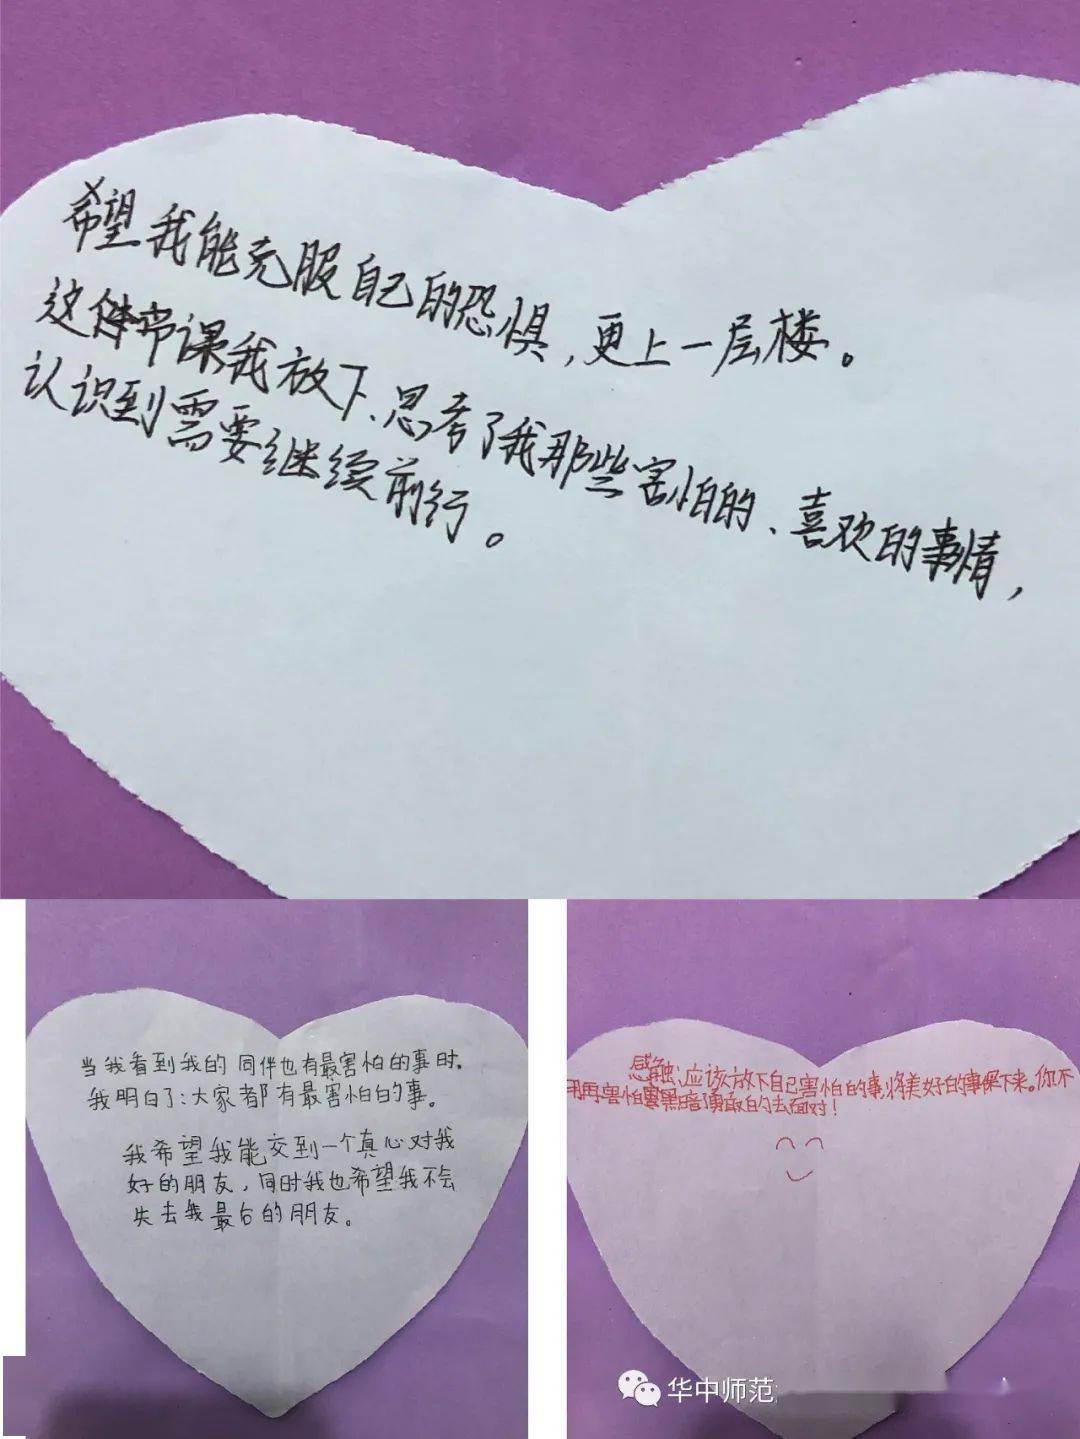 希望我能克服自己的恐惧，更上一层楼。
这节课我放下、思考了我那些害怕的、喜欢的事情，
认识到需要继续前行。
当我看到我的同伴也有最害怕的事时。
我明白了:大家都有最害怕的事。
我希望我能交到一个真心对我
好的朋友，同时我也希望我不会
失去我最后的朋友。
感触:应该放下自己害怕的事,将美好的事保下来。你不
用再害怕黑暗勇敢的去面对！
华中师范